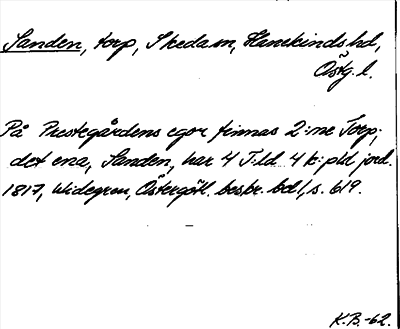 Sanden, torp, Skeda sn, Hanekinds hd,
Östg. l.
På Prestegårdens egor finnas 2:ne Torp;
det ena, Sanden, har 4 T:ld 4 k:pld jord.
1817, Widegren, Östergötl. beskr. bd 1, s. 619.
K.B.-62.